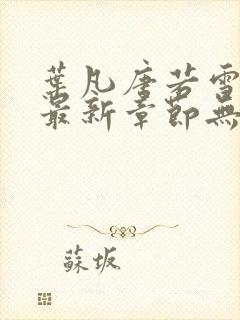 葉凡唐若雪
最新章節無
蘇坂